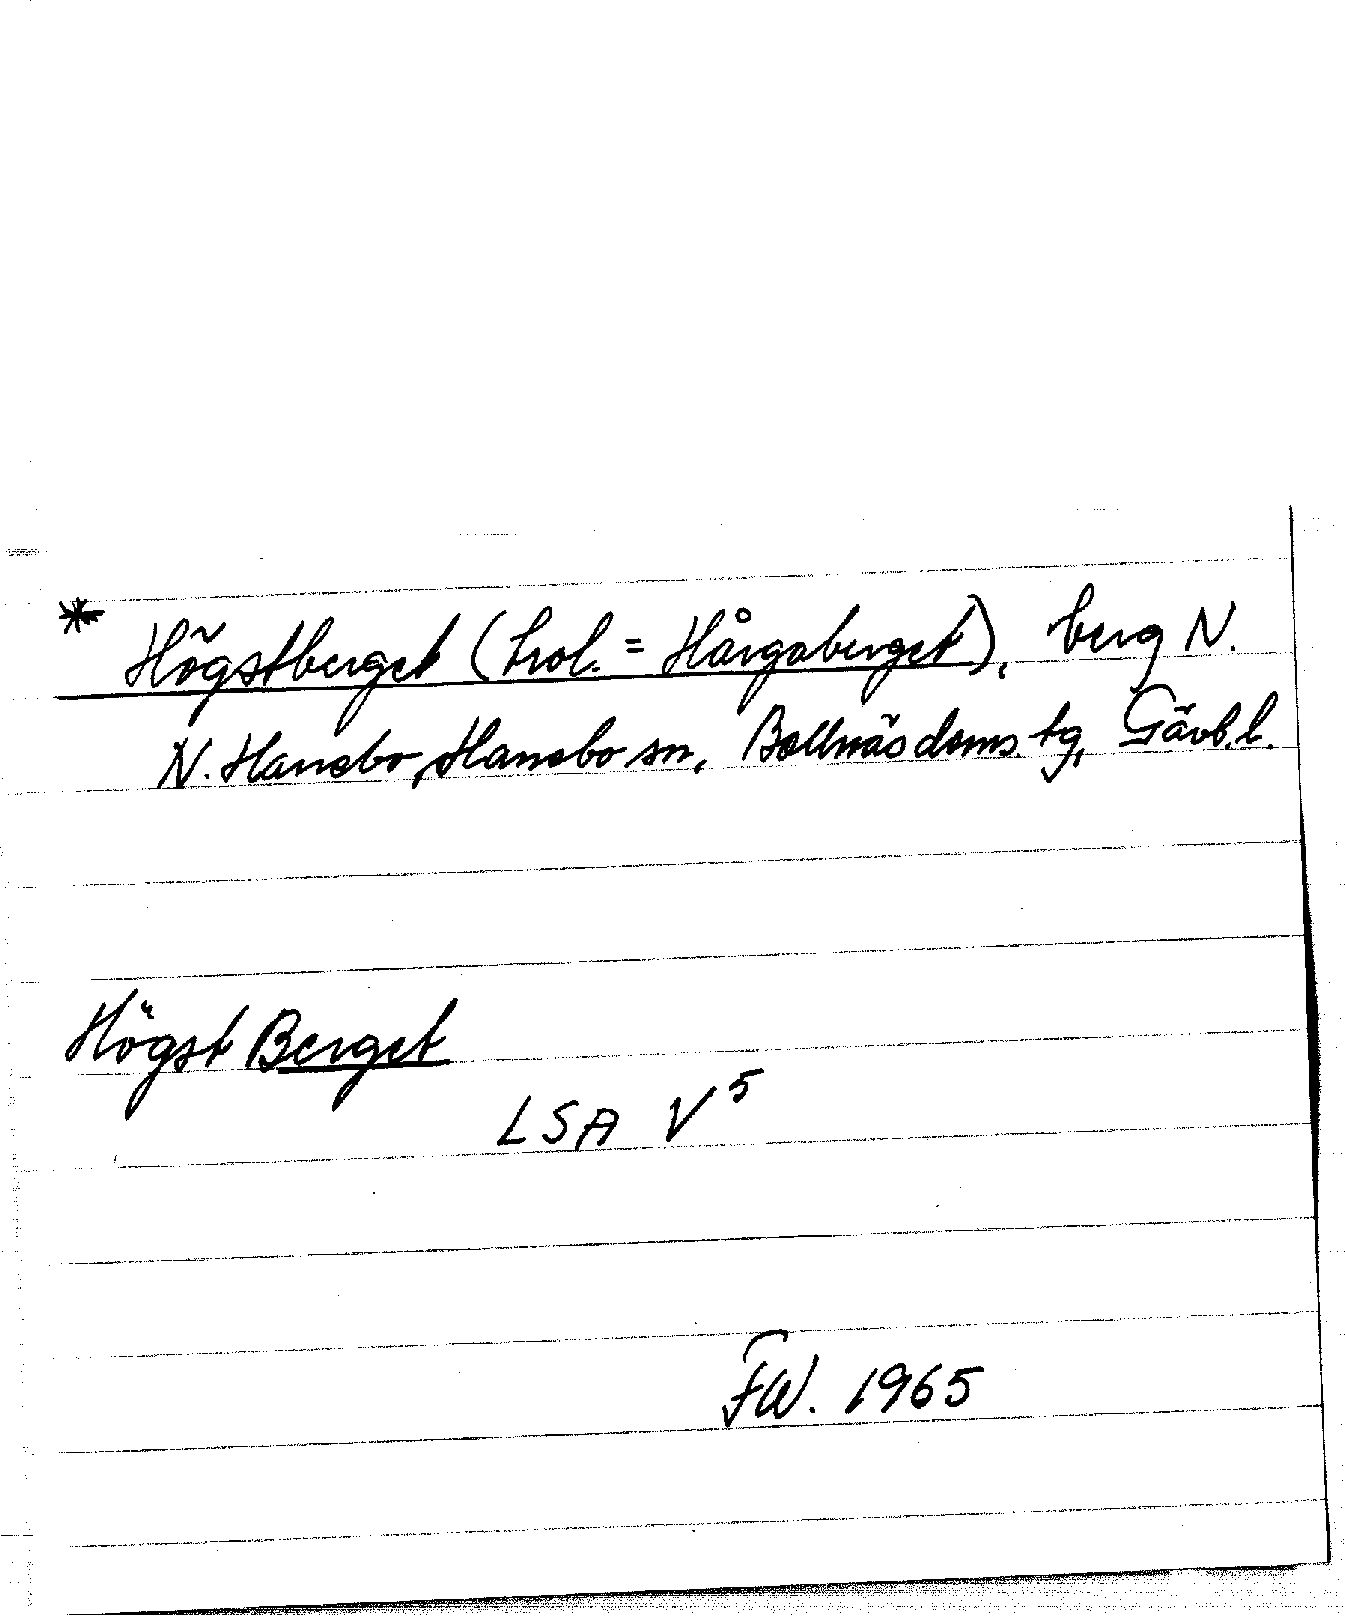 * Högstberget (trol. = Hårgaberget), berg N.
N. Hanebo, Hanebo sn, Bollnäs doms. tg, Gävb. l.
Högst Berget
LSA V⁵
FW. 1965